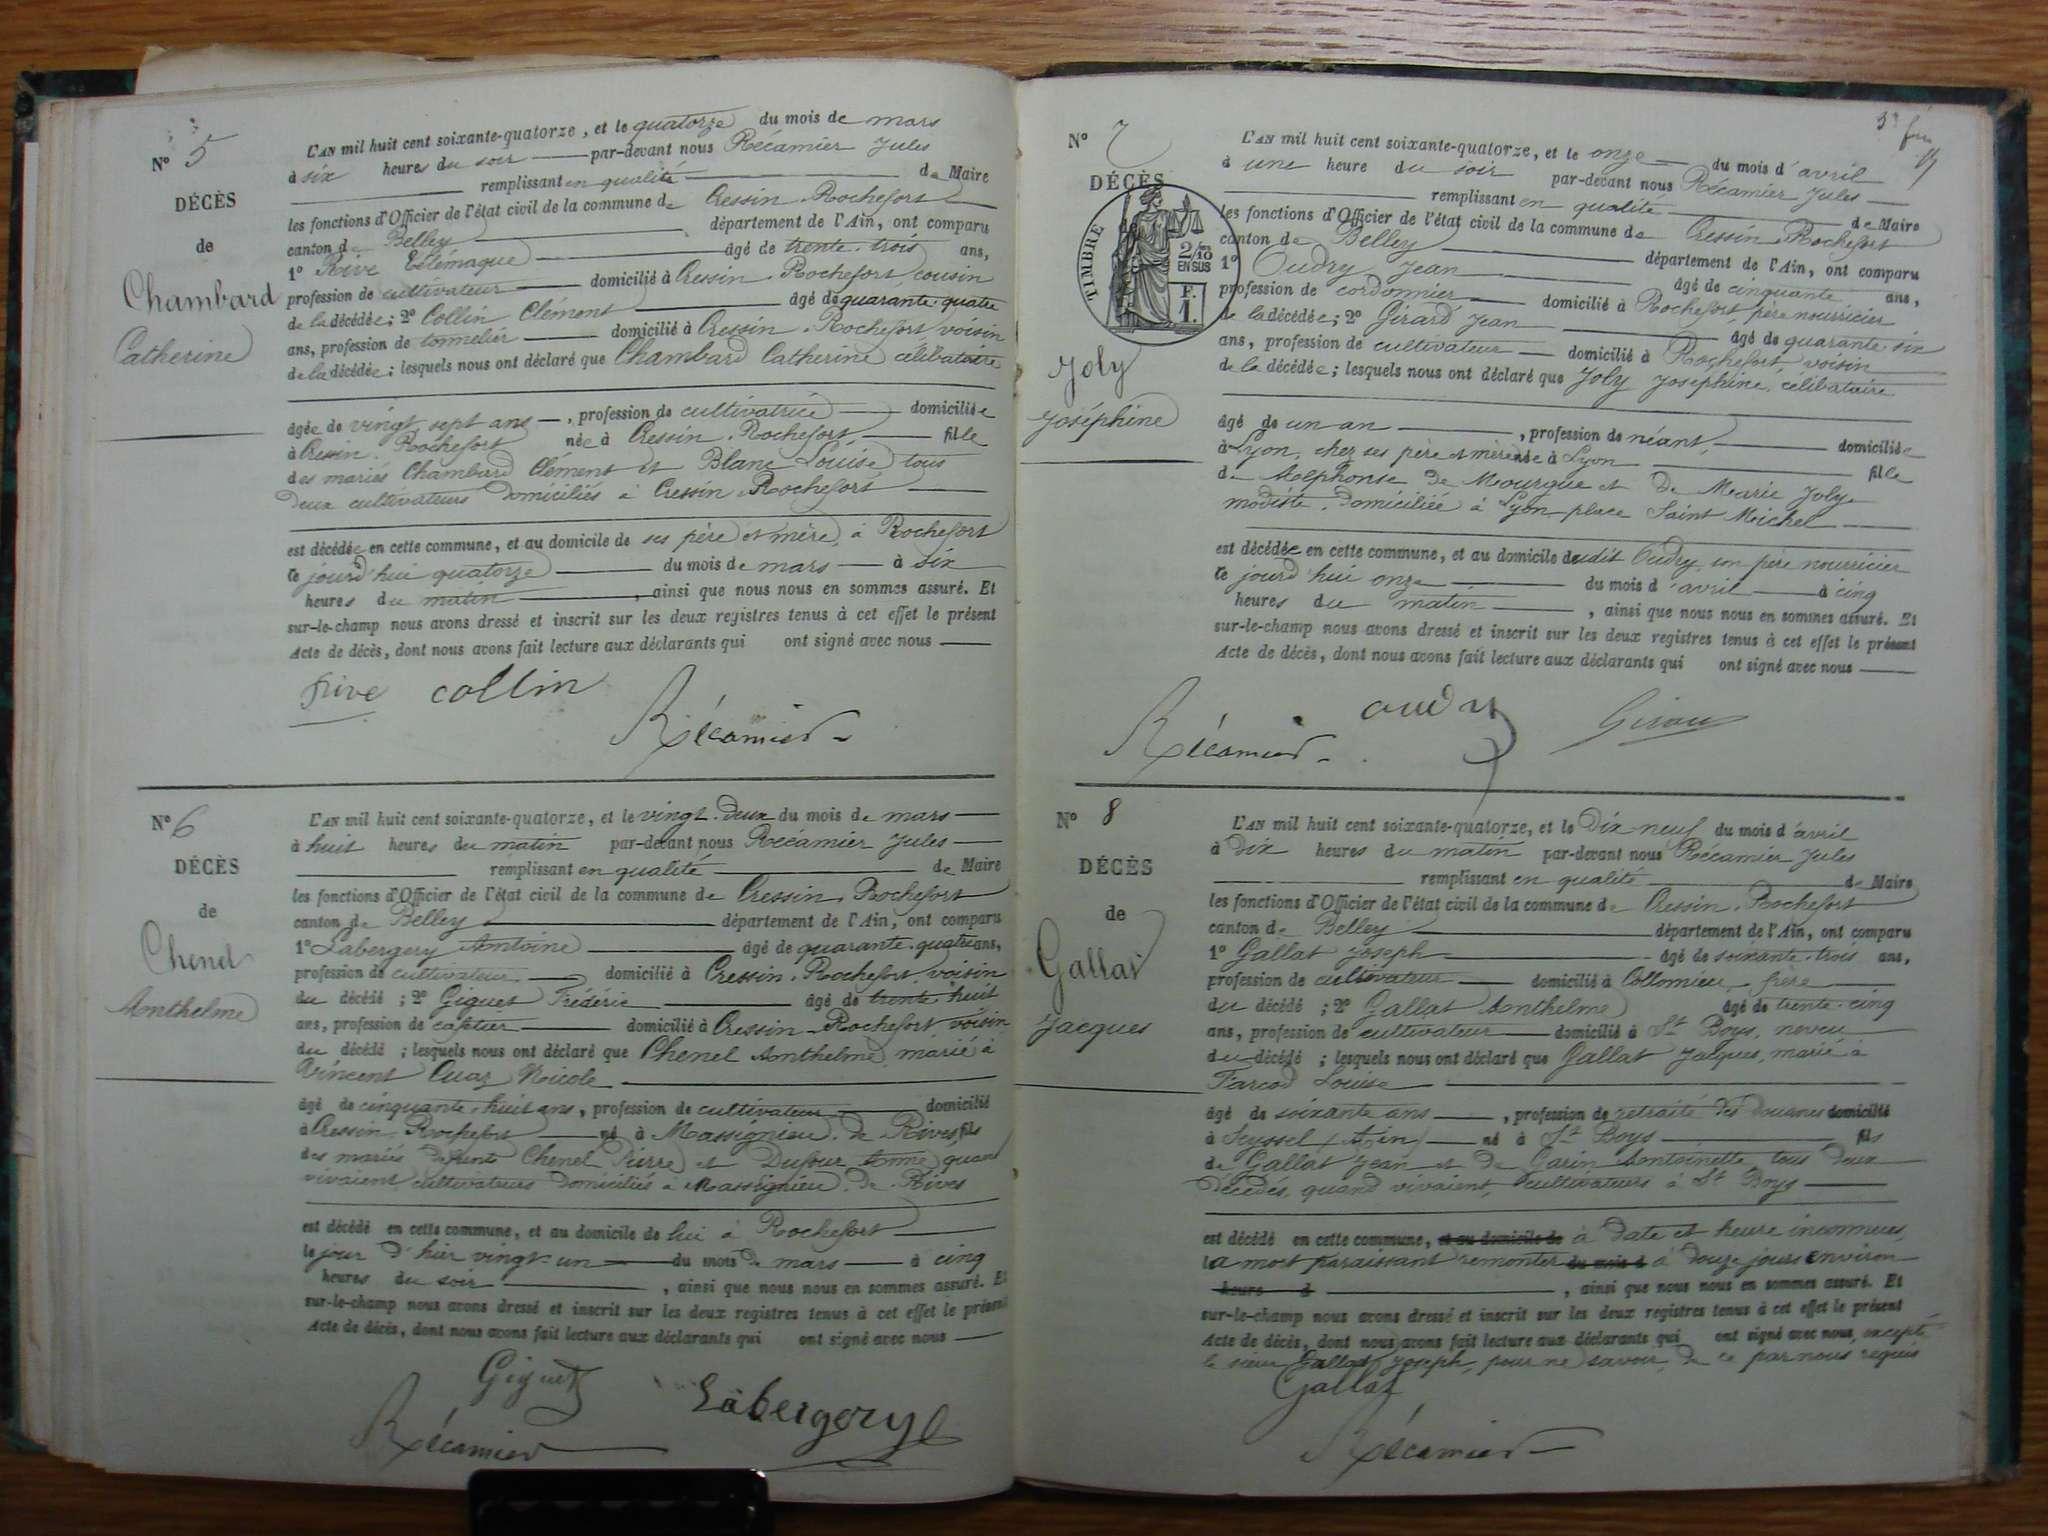 N° 5
DÉCÈS
de
Chambard
Catherine
L'AN mil huit cent soixante-quatorze, et le quatorze du mois de mars
à six heures du soir par-devant nous Récamier Jules
remplissant en qualité de Maire
les fonctions d'Officier de l'état civil de la commune de Cressin-Rochefort
canton de Belley département de l'Ain, ont comparu
1° Rive Télémaque âgé de trente-trois ans,
profession de cultivateur domicilié à Cressin-Rochefort, cousin
de la décédée; 2° Collin Clément âgé de quarante-quatre
ans, profession de tonnelier domicilié à Cressin-Rochefort, voisin
de la décédée; lesquels nous ont déclaré que Chambard Catherine, célibataire
âgée de vingt sept ans, profession de cultivatrice domiciliée
à Cressin-Rochefort née à Cressin-Rochefort fille
des mariés Chambard Clément et Blanc Louise, tous
deux cultivateurs domiciliés à Cressin-Rochefort
est décédée en cette commune, et au domicile de ses père et mère, à Rochefort
le jourd'hui quatorze du mois de mars à six
heures du matin, ainsi que nous nous en sommes assuré. Et
sur-le-champ nous avons dressé et inscrit sur les deux registres tenus à cet effet le présent
Acte de décès, dont nous avons fait lecture aux déclarants qui ont signé avec nous
rive collin
Récamier
N° 6
DÉCÈS
de
Chenel
Anthelme
L'AN mil huit cent soixante-quatorze, et le vingt-deux du mois de mars
à huit heures du matin par-devant nous Récamier Jules
remplissant en qualité de Maire
les fonctions d'Officier de l'état civil de la commune de Cressin-Rochefort
canton de Belley département de l'Ain, ont comparu
1° Labergery Antoine âgé de quarante-quatre ans,
profession de cultivateur domicilié à Cressin-Rochefort, voisin
du décédé; 2° Giguet Frédéric âgé de trente huit
ans, profession de cafetier domicilié à Cressin-Rochefort voisin
du décédé; lesquels nous ont déclaré que Chenel Anthelme, marié à
Vincent Cuaz Nicole
âgé de cinquante-huit ans, profession de cultivateur domicilié
à Cressin-Rochefort né à Massignieu-de-Rives, fils
des mariés défunts Chenel Pierre et Dufour Anne quand
vivaient cultivateurs domiciliés à Massignieu-de-Rives
est décédé en cette commune, et au domicile de lui à Rochefort
le jour d'hier vingt-un du mois de mars à cinq
heures du soir, ainsi que nous nous en sommes assuré. Et
sur-le-champ nous avons dressé et inscrit sur les deux registres tenus à cet effet le présent
Acte de décès, dont nous avons fait lecture aux déclarants qui ont signé avec nous
Giguet
Labergery
Récamier
N° 7
DÉCÈS
TIMBRE
2/10
EN SUS
F.
1.
Joly
Joséphine
L'AN mil huit cent soixante-quatorze, et le onze du mois d'avril
à une heure du soir par-devant nous Récamier Jules
remplissant en qualité de Maire
les fonctions d'Officier de l'état civil de la commune de Cressin-Rochefort
canton de Belley département de l'Ain, ont comparu
1° Oudry Jean âgé de cinquante ans,
profession de cordonnier domicilié à Rochefort, père nourricier
de la décédée; 2° Girard Jean âgé de quarante-six
ans, profession de cultivateur domicilié à Rochefort, voisin
de la décédée; lesquels nous ont déclaré que Joly Joséphine, célibataire
âgé de un an, profession de néant, domiciliée
à Lyon, chez ses père et mère née à Lyon fille
de Adolphonse de Mourgue et de Marie Joly
modiste, domiciliée à Lyon place Saint Michel
est décédée en cette commune, et au domicile dudit Oudry, son père nourricier
le jourd'hui onze du mois d'avril à cinq
heures du matin, ainsi que nous nous en sommes assuré. Et
sur-le-champ nous avons dressé et inscrit sur les deux registres tenus à cet effet le présent
Acte de décès, dont nous avons fait lecture aux déclarants qui ont signé avec nous
Récamier oudry Girau
N° 8
DÉCÈS
de
Gallat
Jacques
L'AN mil huit cent soixante-quatorze, et le dix neuf du mois d'avril
à dix heures du matin par-devant nous Récamier Jules
remplissant en qualité de Maire
les fonctions d'Officier de l'état civil de la commune de Cressin-Rochefort
canton de Belley département de l'Ain, ont comparu
1° Gallat Joseph âgé de soixante-trois ans,
profession de cultivateur domicilié à Collomieu, frère
du décédé; 2° Gallat Anthelme âgé de trente-cinq
ans, profession de cultivateur domicilié à St Boys, neveu
du décédé; lesquels nous ont déclaré que Gallat Jacques, marié à
Farcod Louise
âgé de soixante ans, profession de retraité des douanes domicilié
à Seyssel (Ain) né à St Boys fils
de Gallat Jean et de Garin Antoinette tous deux
décédés, quand vivaient, cultivateurs à St Boys
est décédé en cette commune, et au domicile de à date et heure inconnues,
la mort paraissant remonter du mois d à douze jours environ
heure d, ainsi que nous nous en sommes assuré. Et
sur-le-champ nous avons dressé et inscrit sur les deux registres tenus à cet effet le présent
Acte de décès, dont nous avons fait lecture aux déclarants qui ont signé avec nous, excepté
le sieur Gallat Joseph, pour ne savoir, de ce par nous requis
Gallat
Récamier